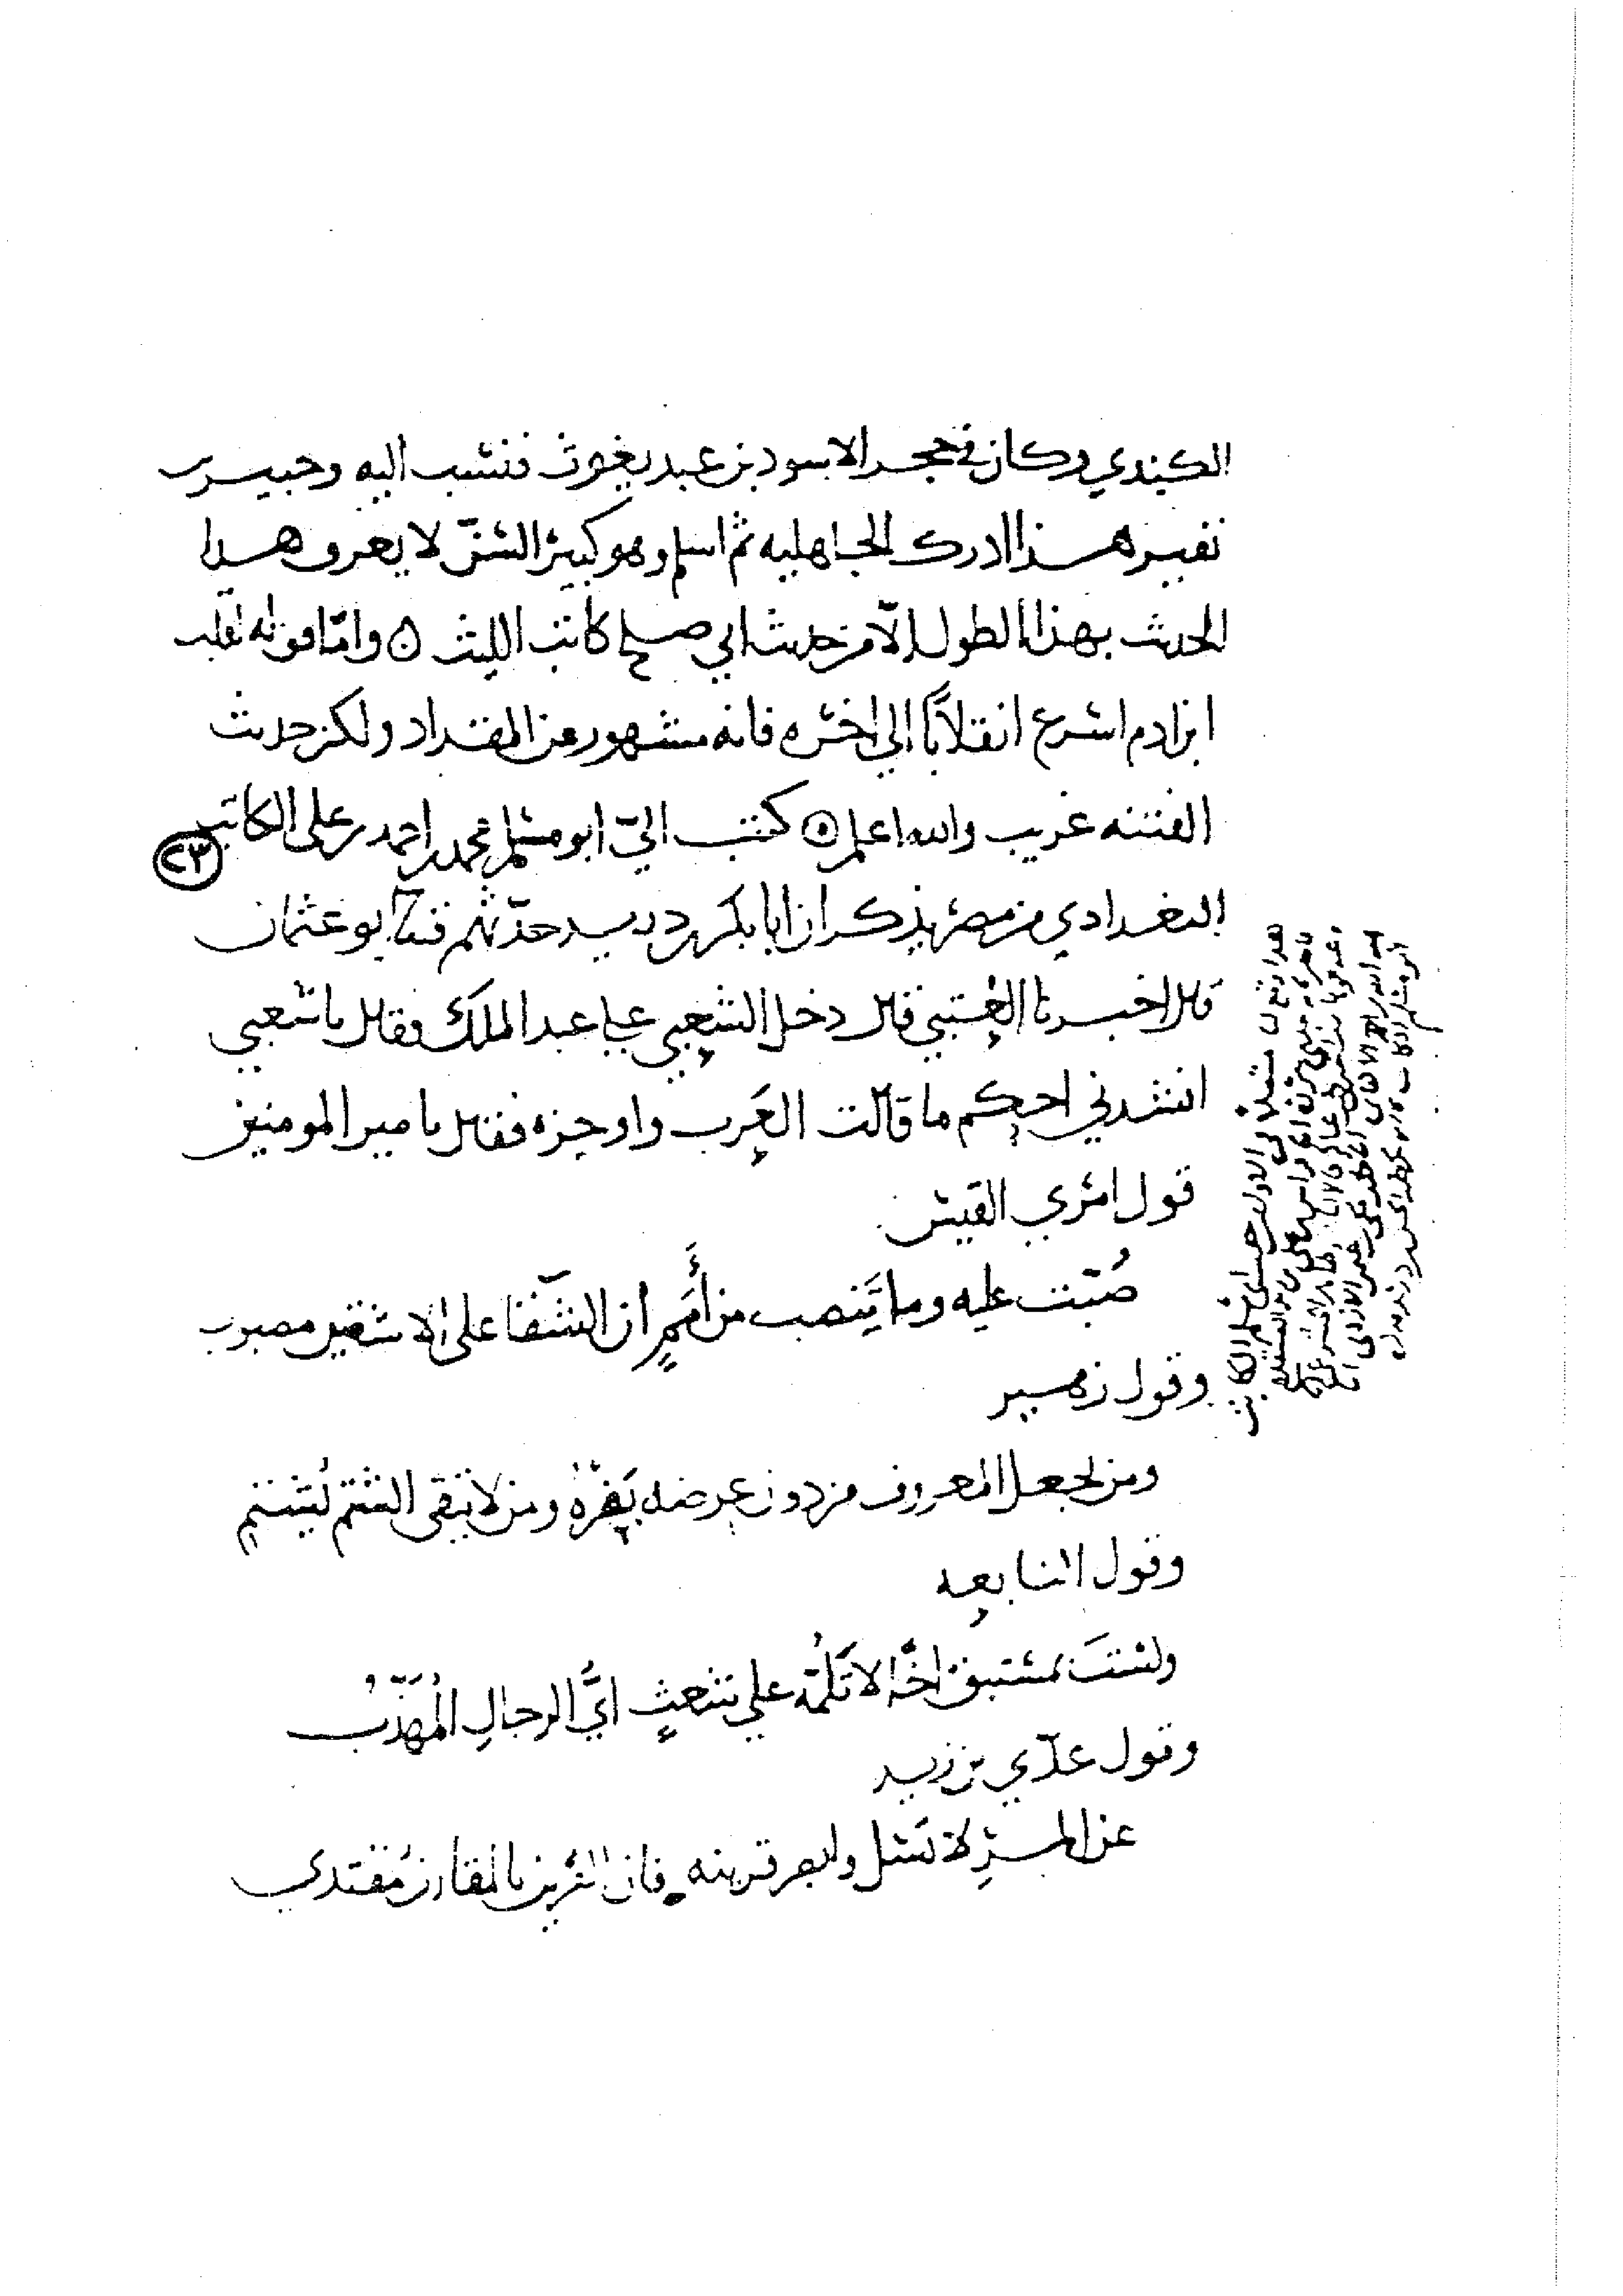 الكندي وكان في حجر الاسود بن عبد يغوث فنسب اليه وجبير بن
نفير هذا ادرك الجاهليه ثم اسلم وهو كبير السن لا يعرف هذا
الحديث بهذا الطول إلا من حديث ابي صلح كاتب الليث ۞ وامّا قوله لقلب
ابن ادم اسرع انقلابًا الى اخره فانه مشهور عن المقداد ولكن حديث
الفتنه غريب والله اعلم ۞ كتب اليّ ابو مسلم محمد بن احمد بن على الكاتب
٢٣
البغدادي من مصر يذكر ان ابا بكر بن دريد حدّثهم قثنا ابو عثمان
قال اخبرنا العُتبي قال دخل الشعبي على عبد الملك فقال يا شعبي
انشدني احكم ما قالت العَرب واوجزه فقال يا مير المومنين
قول امرئ القيس
صُبّت عليه وما يَنصب من أَمَمٍ ان الشقا على الاشقين مصبوب
وقول زهير
ومن يجعل المعروف من دون عرضه يَفِرْهُ ومن لا يتقى الشتم يُشتم
وقول النابعه
ولستَ بمستبق اخًا لا تَلُمّه على شعثٍ ايُّ الرجالِ المُهَذّبُ
وقول عدّي بن زيد
عن المرءِ لا تَسَل وابصر قرينه فان القرين بالمقارن مُقتدي